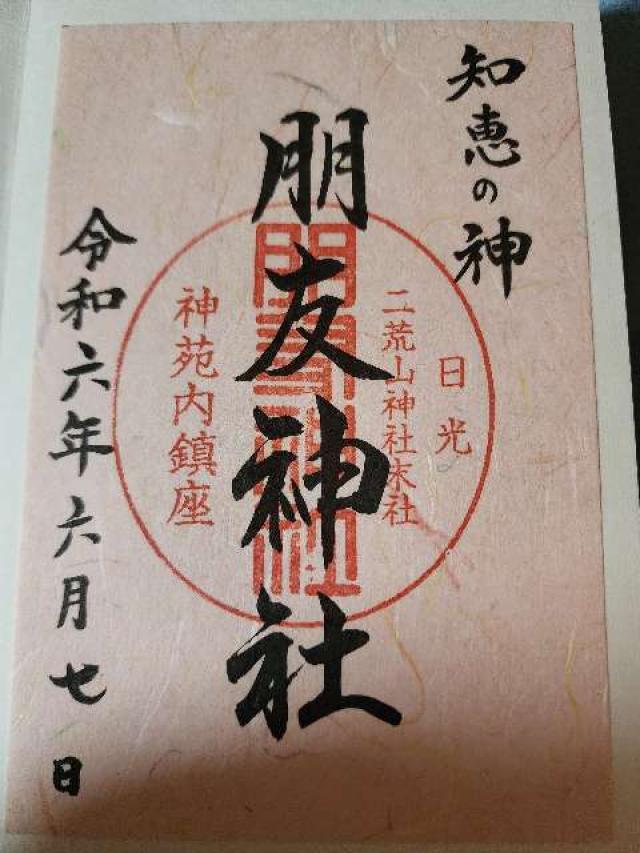 知恵の神
日光
二荒山神社末社
朋友神社
神苑内鎮座
令和六年六月七日